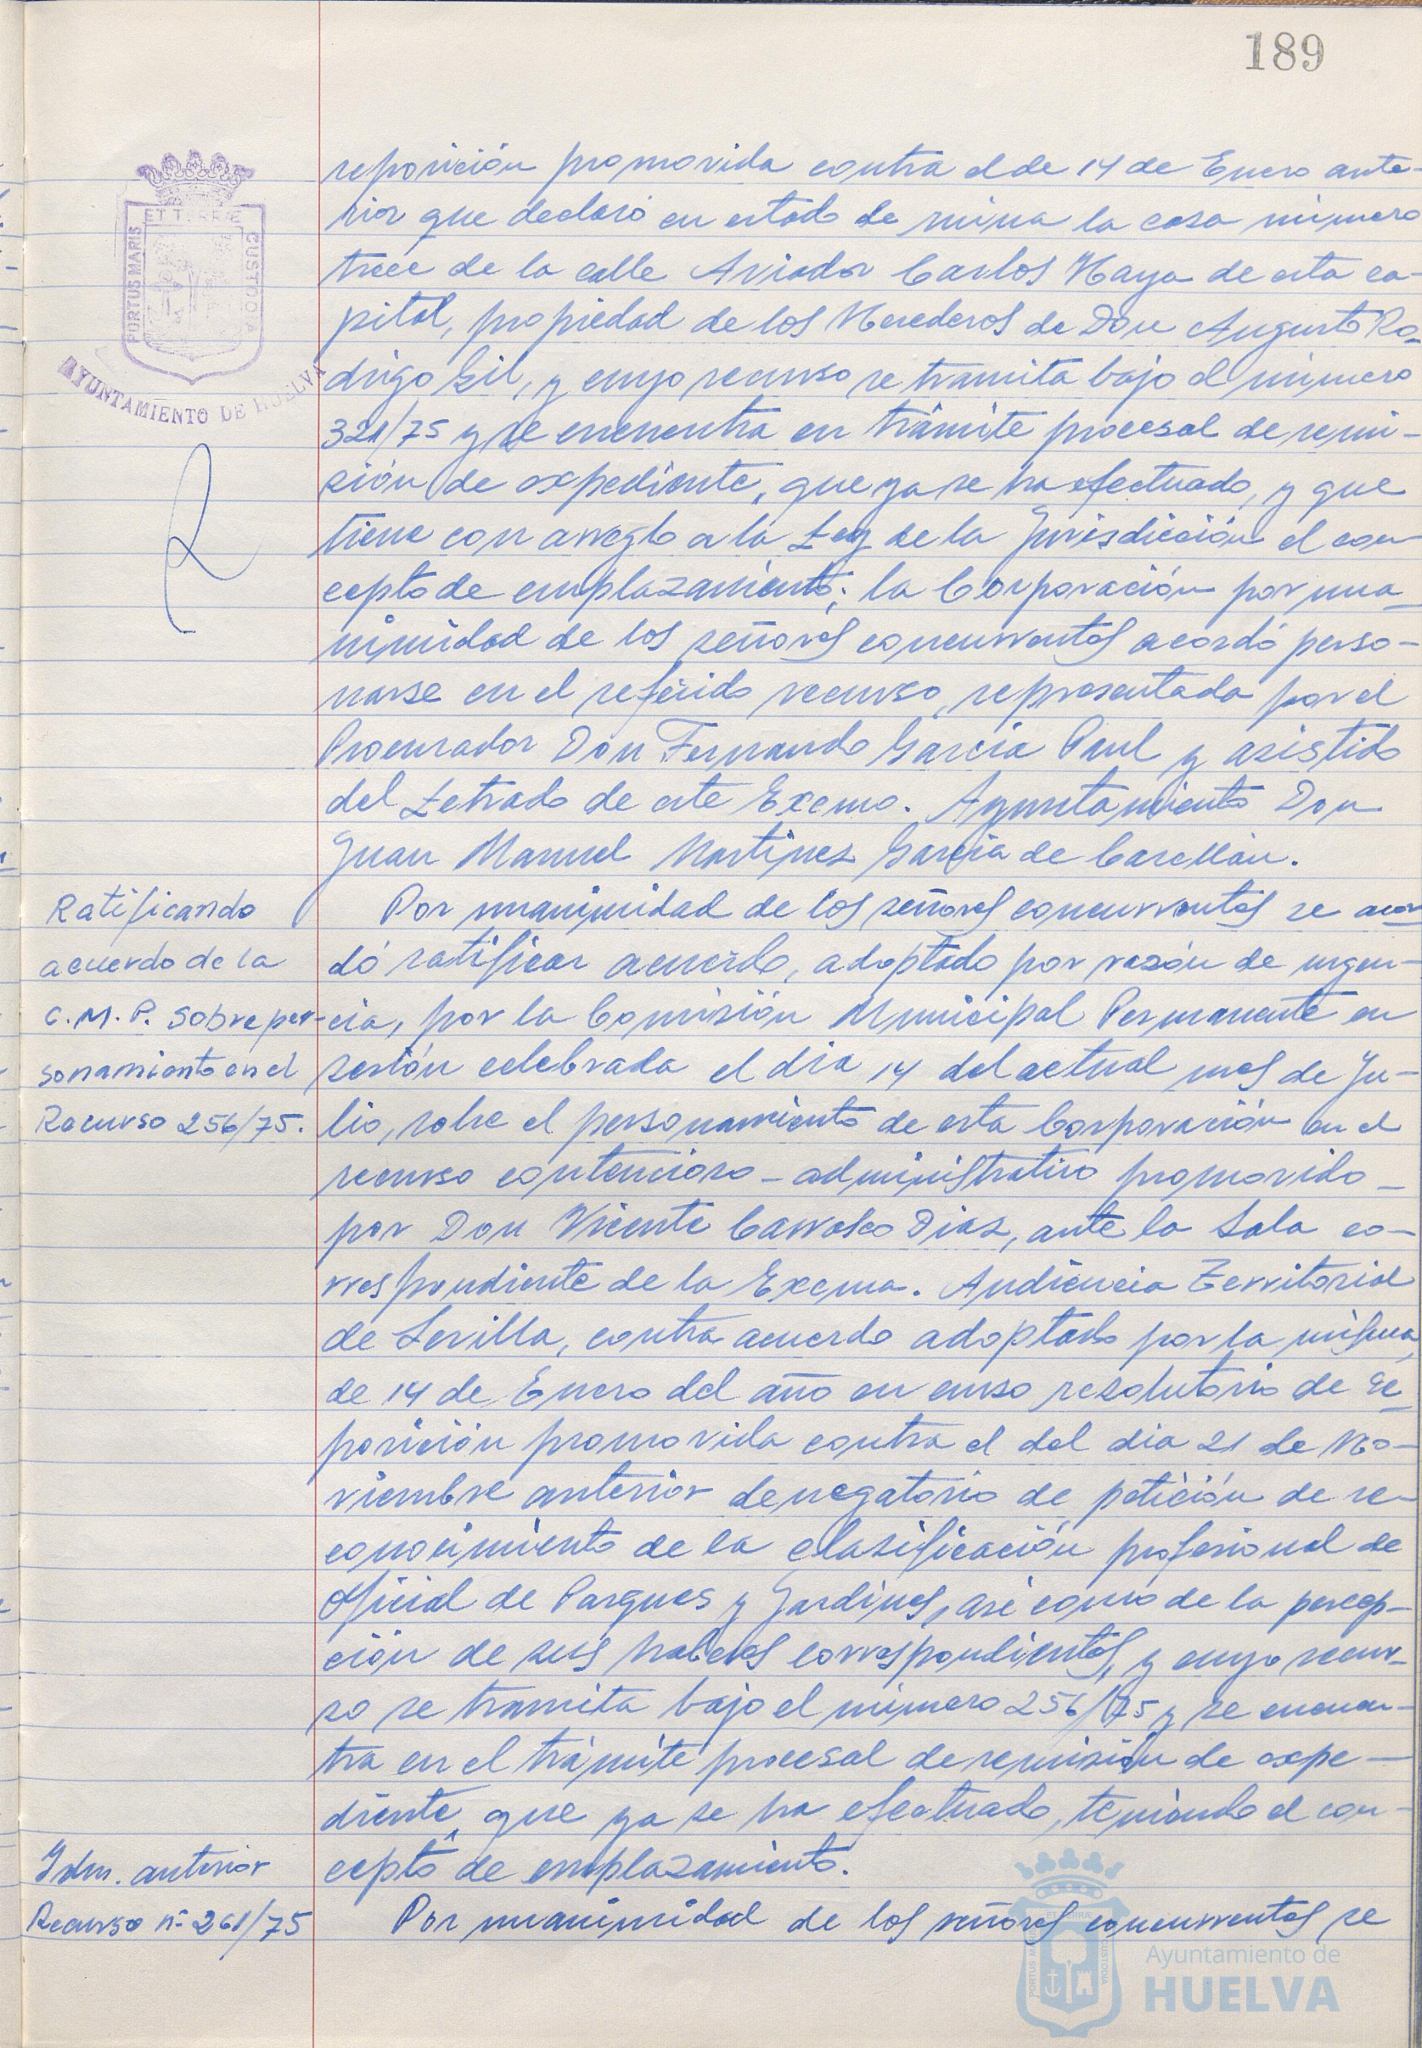 189
reposición promovida contra el de 14 de Enero ante-
rior que declaró en estado de ruina la casa número
trece de la calle Aviador Carlos Haya de esta ca-
pital, propiedad de los Herederos de Don Augusto Ro-
drigo Gil, y cuyo recurso se tramita bajo el número
321/75 y se encuentra en trámite procesal de remi-
sión de expediente, que ya se ha efectuado, y que
tiene con arreglo a la Ley de la Jurisdicción el con-
cepto de emplazamiento; la Corporación por una-
nimidad de los señores concurrentes acordó perso-
narse en el referido recurso, representada por el
Procurador Don Fernando García Paul y asistido
del Letrado de este Excmo. Ayuntamiento Don
Juan Manuel Martínez García de Casellán.
Ratificando
acuerdo de la
C.M.P. sobre per-
sonamiento en el
Recurso 256/75.
Por unanimidad de los señores concurrentes se acor-
dó ratificar acuerdo, adoptado por razón de urgen-
cia, por la Comisión Municipal Permanente en
sesión celebrada el dia 14 del actual mes de Ju-
lio, sobre el personamiento de esta Corporación en el
recurso contencioso-administrativo promovido
por Don Vicente Carrasco Diaz, ante la Sala co-
rrespondiente de la Excma. Audiencia Territorial
de Sevilla, contra acuerdo adoptado por la misma,
de 14 de Enero del año en curso resolutorio de re-
posición promovida contra el del dia 21 de No-
viembre anterior denegatorio de petición de re-
conocimiento de la clasificación profesional de
Oficial de Parques y Jardines, asi como de la percep-
ción de sus haberes correspondientes, y cuyo recur-
so se tramita bajo el número 256/75 y se encuen-
tra en el trámite procesal de remisión de expe-
diente, que ya se ha efectuado, teniendo el con-
cepto de emplazamiento.
Idm. anterior
Recurso nº 261/75
Por unanimidad de los señores concurrentes se
PORTUS MARIS ET TERRAE CUSTODIA
AYUNTAMIENTO DE HUELVA
Ayuntamiento de
HUELVA